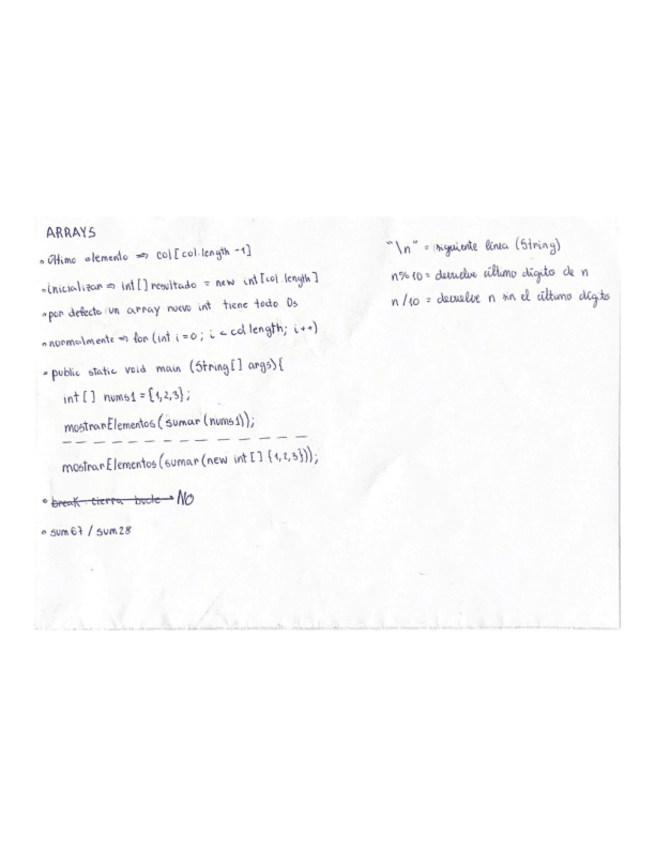 ARRAYS
• último elemento => col[col.length -1]
• inicializar => int[] resultado = new int[col.length]
• por defecto un array nuevo int tiene todo 0s
• normalmente => for (int i=0; i < col.length; i++)
• public static void main (String[] args){
int [] nums1 = {1,2,3};
mostrarElementos(sumar(nums1));
mostrarElementos(sumar(new int[] {1,2,3}));
• break cierra bucle → NO
• sum67 / sum28
"\n" = siguiente línea (String)
n%10 = devuelve último dígito de n
n/10 = devuelve n sin el último dígito